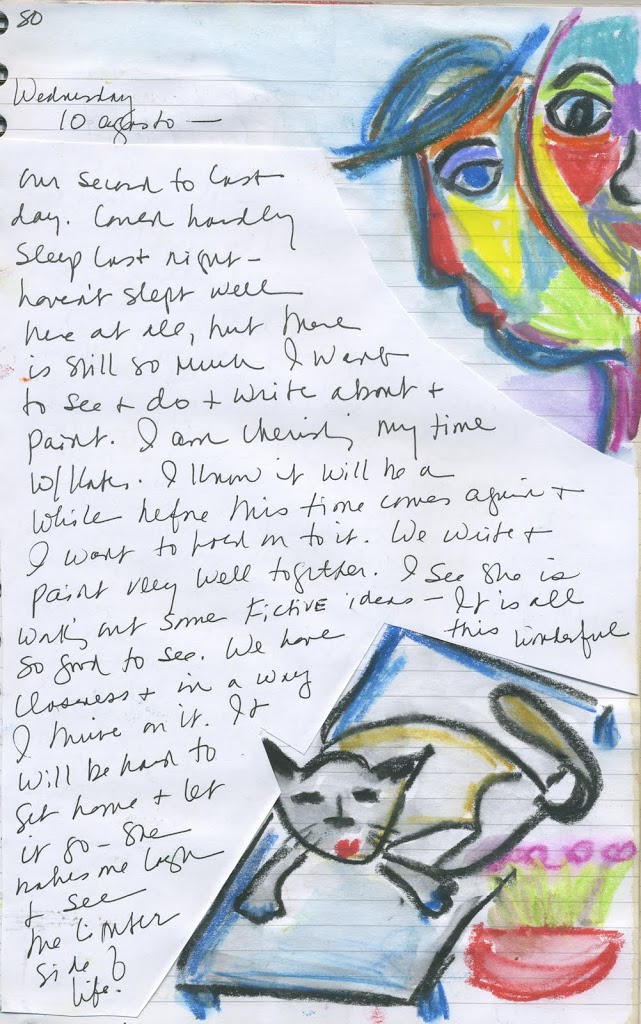 80
Wednesday
10 agosto —
our second to last
day. Could hardly
sleep last night –
haven't slept well
here at all, but there
is still so much I want
to see + do + write about +
paint. I am cherishing my time
w/ Kates. I know it will be a
while before this time comes again +
I want to hold on to it. We write +
paint very well together. I see she is
working out some fictive ideas – It is all
so good to see. We have this wonderful
closeness + in a way
I thrive on it. It
will be hard to
get home + let
it go – she
makes me laugh
+ see
the lighter
side of
life.